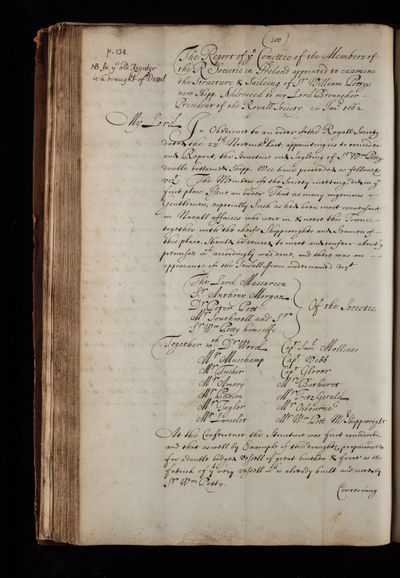 (100)
p. 134.
NB. In yᵉ old Register
is a draught of yᵉ Vessel
The Report of yᵉ Comittee of the Members of
the R. Societie in Ireland appointed to examine
the Structure & Sailing of Sʳ William Pettys
new Shipp. Addressed to my Lord Brouncker
President of the Royall Society. 20 Janʳ 1662
My Lord
In Obedience to an order of the Royall Society
dated the Novemb last, appointing us to consider
and Report the Structure and Sayling of Sʳ Wᵐ Petty
double bottom'd Shipp. Wee have proceeded as followes
viz. The Members of the Society meeting did in yᵉ
first place issue an order That as many ingenious
Gentlemen, especially Such as had been most conversant
in Navall affaires who were in & neere this Towne,
together with the cheife Shippwrights and Seamen of
this place, should be desired to meet and conferr about yᵉ
premises wᶜʰ accordingly was done, and there was an
appearance of the Severall persons undernamed. Vizᵗ
The Lord Massareen
Sʳ Anthony Morgan
Dʳ Peter Pett
Mʳ Southwell and Sʳ
Sʳ Wᵐ Petty himselfe
Of the Societie
Together wᵗʰ Dʳ Wood
Mʳ Muschamp
Mʳ Tucker
Mʳ Amory
Mʳ
Mʳ Taylor
Mʳ Lancelot
Capᵗ Samˡ Mollines
Capᵗ Webb
Capᵗ Glover
Mʳ Bathurst
Mʳ FitzGerald
Mʳ Osbourne
Mʳ Wᵐ Pett Mʳ Shippwright
At the Conference the Structure was first considered,
and that as well by Example of the draught, propounded
for a double bodyed vessell of great burthen & force as the
fabrick of yᵉ very vessell wᶜʰ is already built and used by
Sʳ Wᵐ Petty.
Concerning